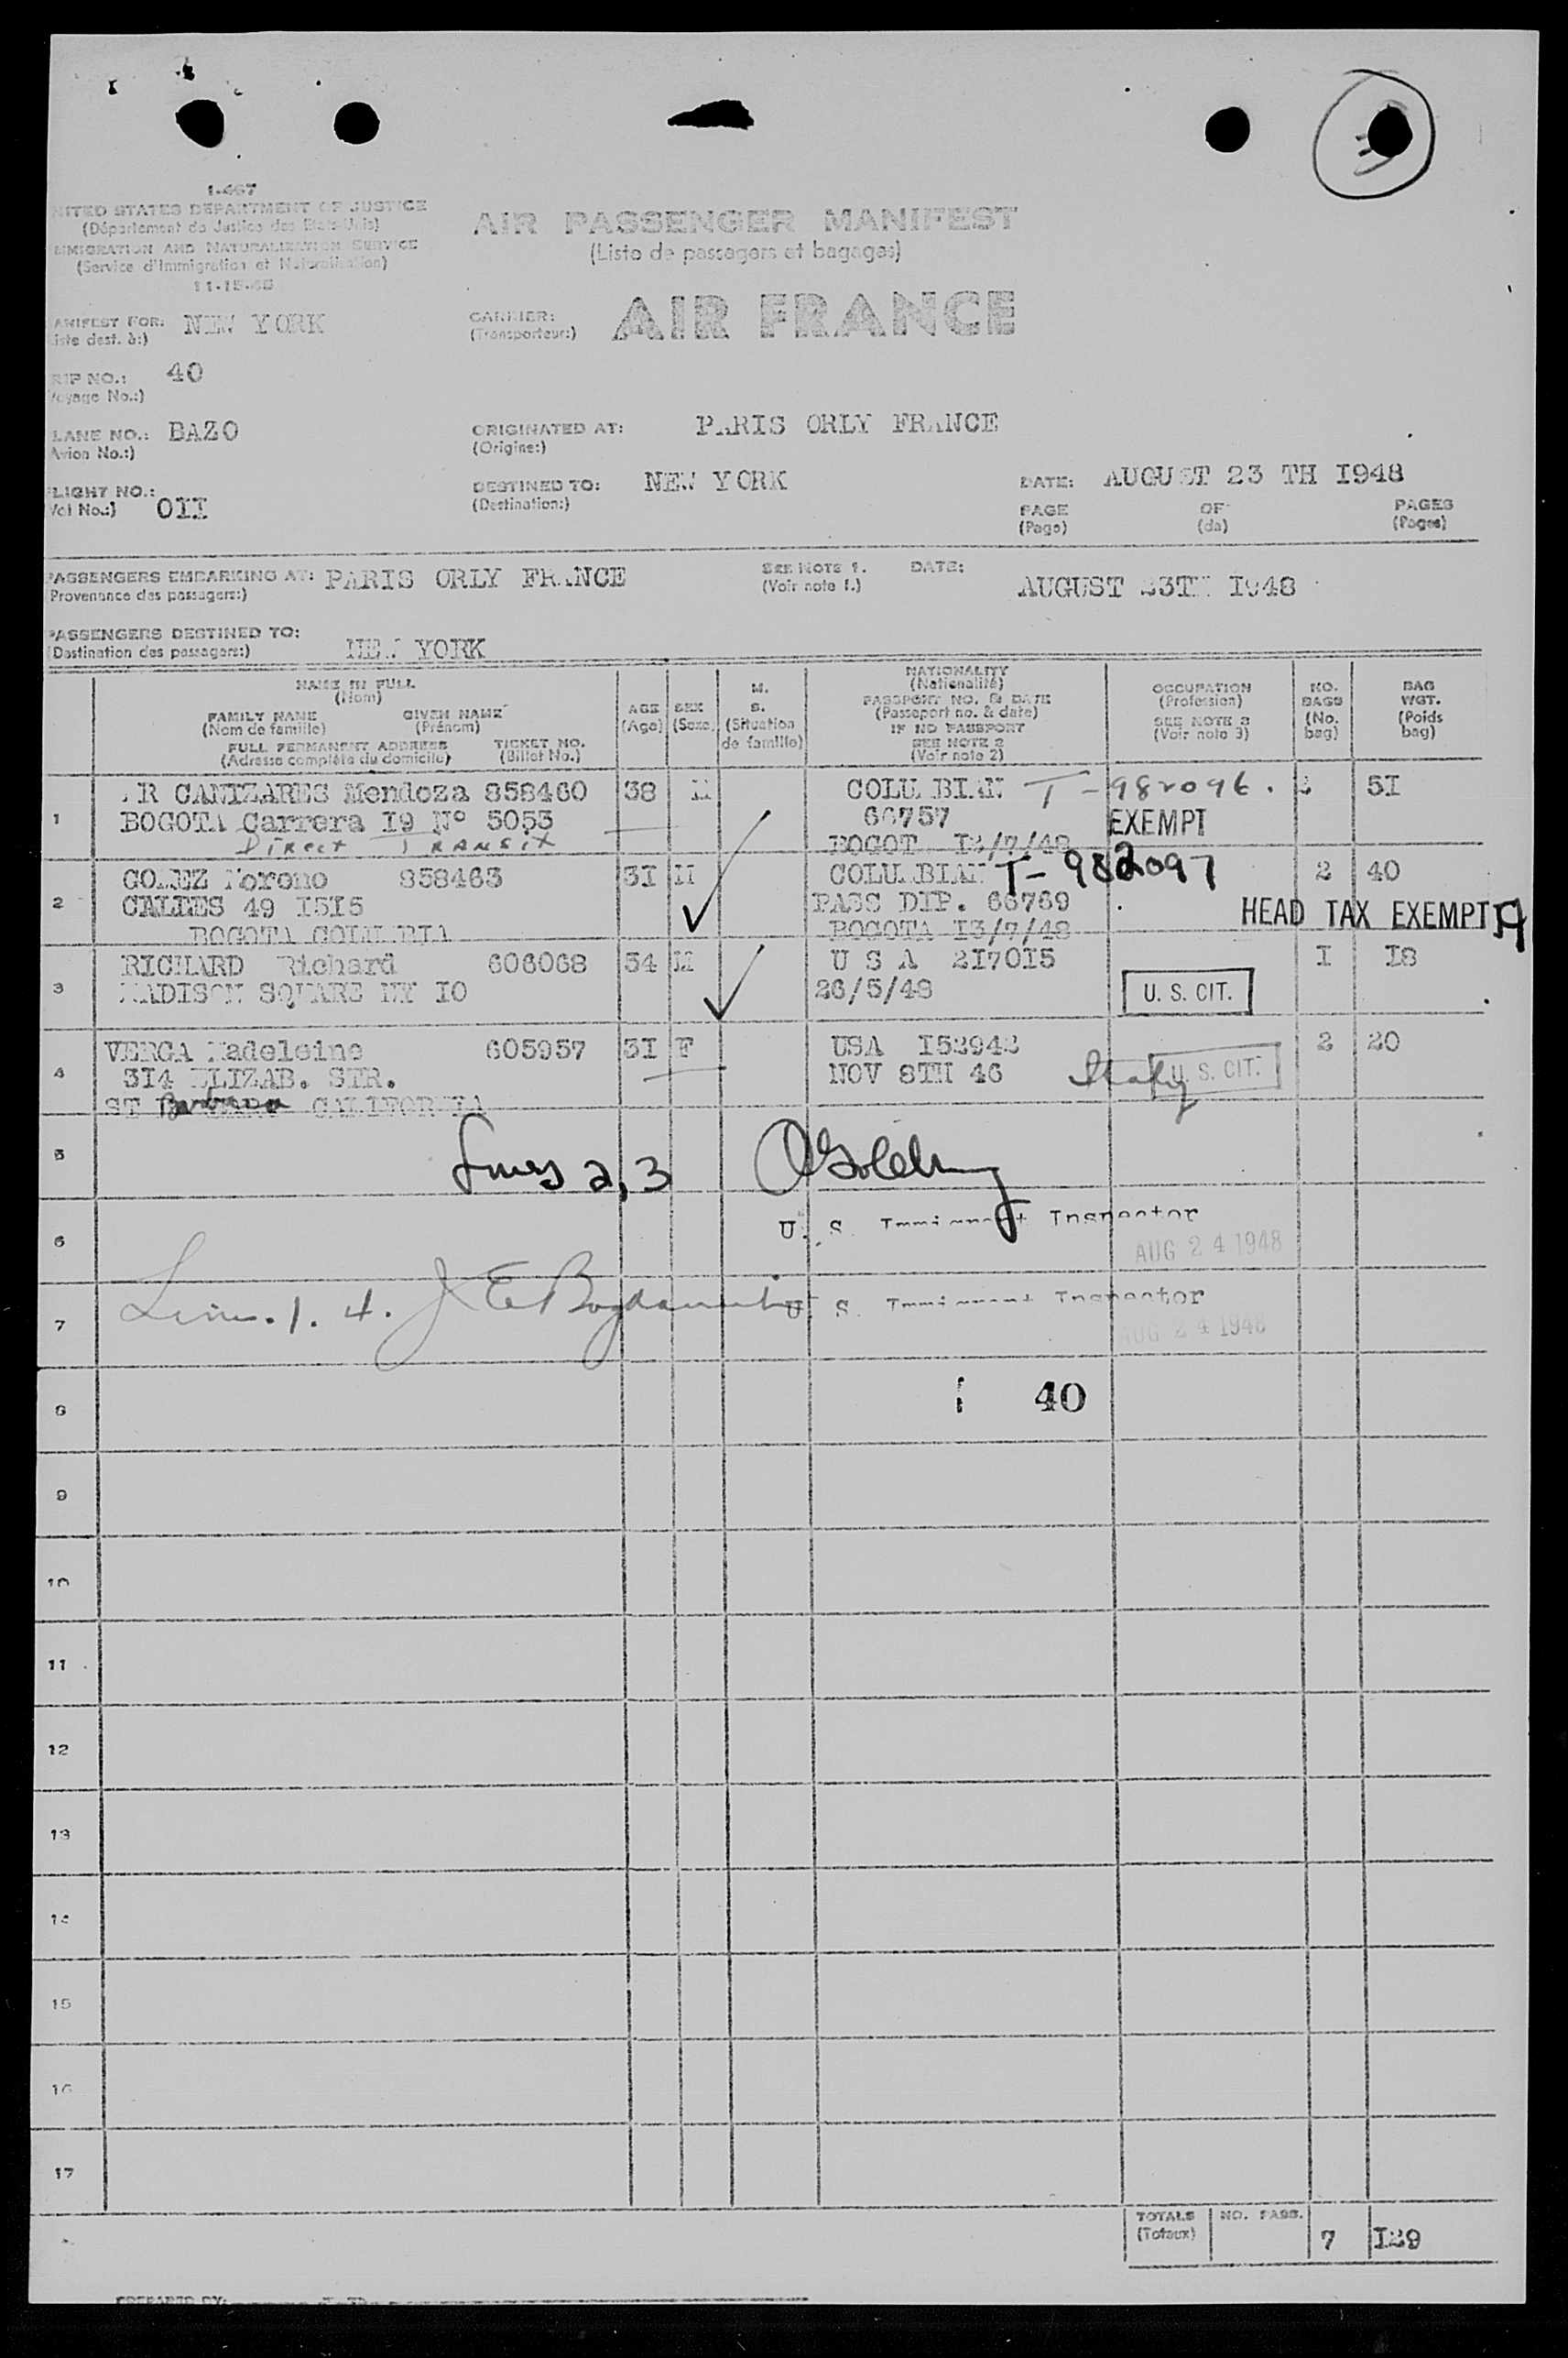 1-467
NITED STATES DEPARTMENT OF JUSTICE
(Département de Justice des Etats-Unis)
MMIGRATION AND NATURALIZATION SERVICE
(Service d'Immigration et Naturalisation)
11-15-46
AIR PASSENGER MANIFEST
(Liste de passagers et bagages)
ANIFEST FOR: NEW YORK
iste dest. à:)
CARRIER: AIR FRANCE
(Transporteur:)
RIP NO.: 40
Voyage No.:)
LANE NO.: BAZO
Avion No.:)
ORIGINATED AT: PARIS ORLY FRANCE
(Origine:)
LIGHT NO.: OII
Vol No.:)
DESTINED TO: NEW YORK
(Destination:)
DATE: AUGUST 23 TH I948
PAGE OF PAGES
(Page) (de) (Pages)
PASSENGERS EMBARKING AT: PARIS ORLY FRANCE SEE NOTE 1. DATE: AUGUST 23TH I948
Provenance des passagers:) (Voir note 1.)
PASSENGERS DESTINED TO: NEW YORK
(Destination des passagers:)
NAME IN FULL
(Nom)
FAMILY NAME GIVEN NAME
(Nom de famille) (Prénom)
FULL PERMANENT ADDRESS TICKET NO.
(Adresse complète du domicile) (Billet No.)
AGE
(Age)
SEX
(Sexe)
M.
S.
(Situation
de famille)
NATIONALITY
(Nationalité)
PASSPORT NO. & DATE
(Passeport no. & date)
IF NO PASSPORT
SEE NOTE 2
(Voir note 2)
OCCUPATION
(Profession)
SEE NOTE 3
(Voir note 3)
NO.
BAGS
(No.
bag)
BAG
WGT.
(Poids
bag)
1 R CANIZARES Mendoza 858460 38 M COLUMBIAN T-982096. 5I
BOGOTA Carrera I9 N° 5053 66757 EXEMPT
Direct Transit BOGOT I3/7/48
2 GOMEZ Moreno 858463 3I M COLUMBIAN T-982097 2 40
CALLES 49 I5I5 PASS DIP. 66769 HEAD TAX EXEMPT
BOGOTA COLUMBIA BOGOTA I3/7/48
3 RICHARD Richard 606068 54 M U S A 2I70I5 I I8
MADISON SQUARE NY IO 26/5/48 U. S. CIT.
4 VERGA Madeleine 605957 3I F USA I52942 2 20
3I4 ELIZAB. STR. NOV 8TH 46 Italy U. S. CIT.
ST Barbara CALIFORNIA
5 Lines 2, 3
6 U. S. Immigrant Inspector
AUG 24 1948
7 Lines. 1. 4. U. S. Immigrant Inspector
AUG 24 1948
8 40
9
10
11
12
13
14
15
16
17
TOTALS NO. PASS. 7 I29
(Totaux)
PREPARED BY: